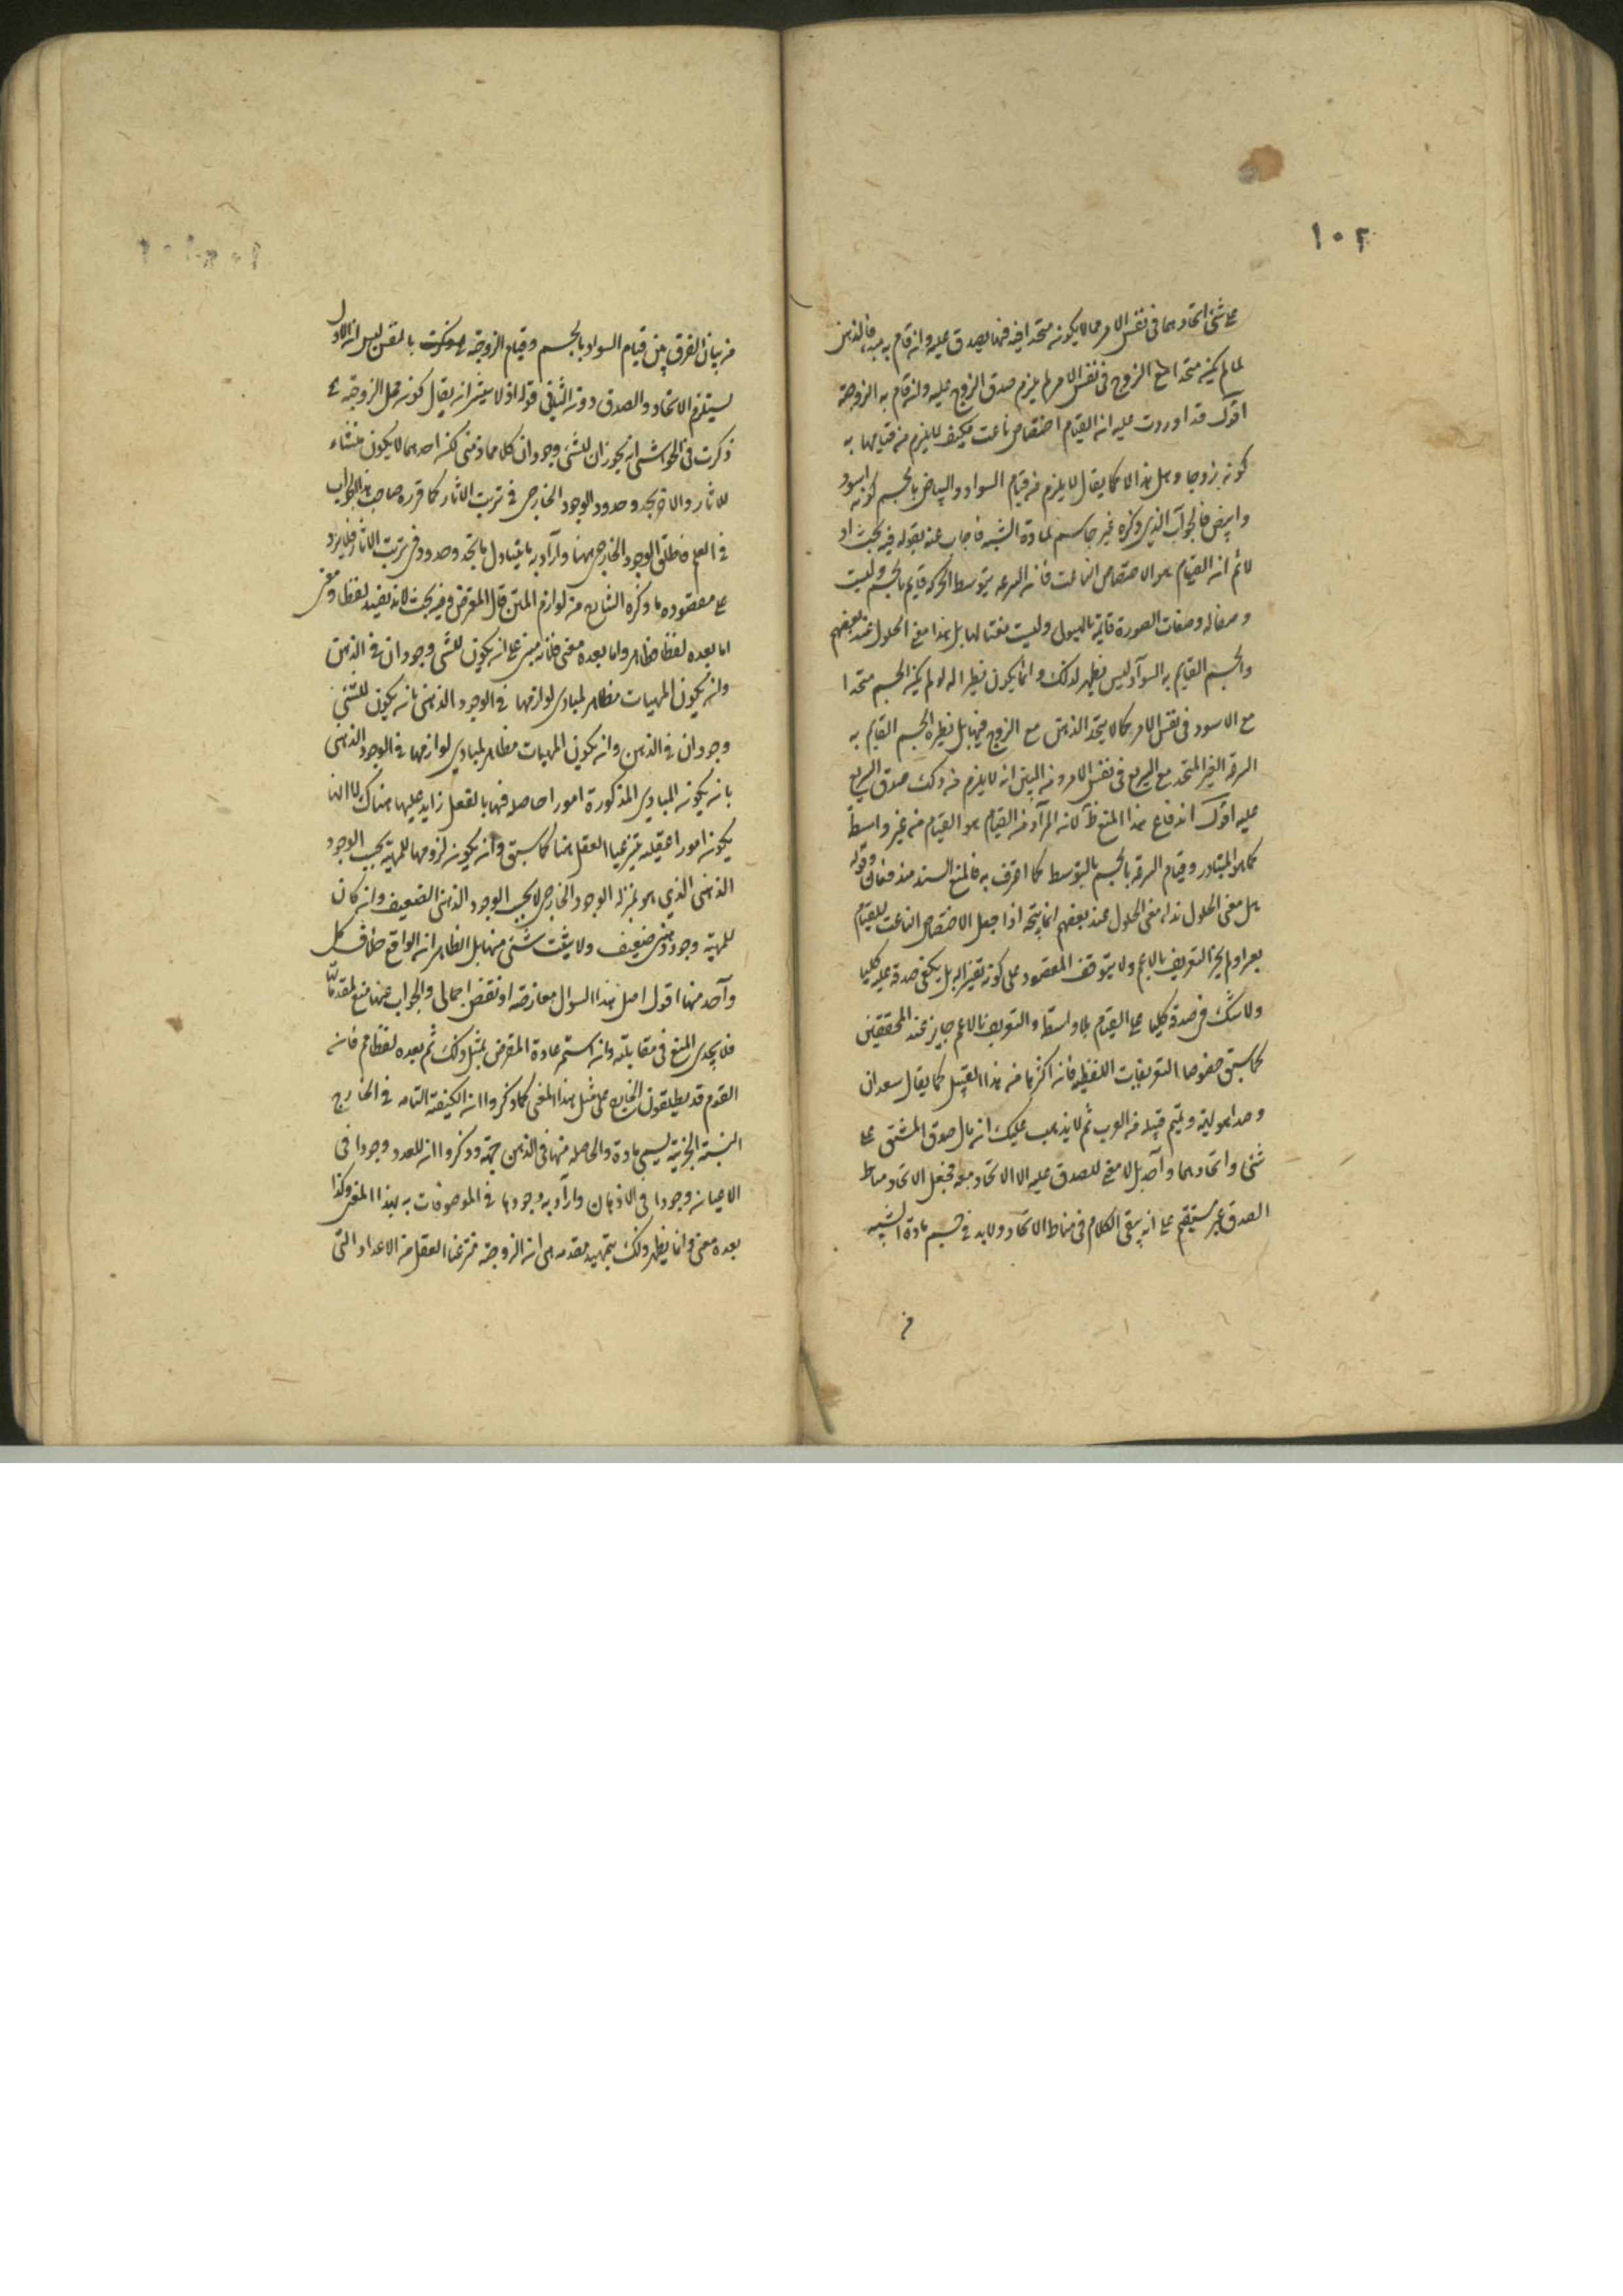 ١٠٢
على شئ اتحادهما في نفس الامر فما لا يكونه متحدا فيه فيها يصدق عليه وانه قام به مبد، فالذهن
لما لم يكن متحدا مع الزوج في نفس الامر لم يلزم صدق الزوج عليه وانه قام به الزوجية
اقول قد اوردت عليه انه القيام اختصاص ناعت فكيف لا يلزم من قيامها به
كونه زوجا وهل هذا الا كما يقال لا يلزم من قيام السواد والبياض بالجسم كونه اسود
وابيض فالجواب الذي ذكره غير حاسم لمادة الشبه فاجاب عنه بقوله فيه بحث اذ
لانم انه القيام هو الاختصاص الناعت فانه السرعه بتوسط الحركه قايم بالجسم وليست
وصفا له وصفات الصورة قايمة بالهيولى وليست نعتا لها بل هذا معنى الحلول عند بعضهم
والجسم القايم به السواد ليس نظير لذلك وانما يكون نظيرا له لو لم يكن الجسم متحدا
مع الاسود في نفس الامر كما لا يتحد الذهن مع الزوج فيها بل نظيره الجسم القايم به
السرعه الغير المتحد مع السريع في نفس الامر ومن البين انه لا يلزم من ذلك صدق السريع
عليه اقول اندفاع هذا المنع ظ لانه المراد من القيام هو القيام من غير واسطة
كما هو المتبادر وقيام السرعه بالجسم بالتوسط كما اعترف به فالمنع السند مندفعان وقوله
بل معنى الحلول هذا معنى الحلول عند بعضهم انما يتجه اذا جعل الاختصاص الناعت للقيام
ولم يجز التعريف بالاعم ولا يتوقف المقصود على كونه تفسيرا له بل يكفي صدقه عليه كليا
ولا شك في صدقه كليا على القيام بلا واسطة والتعريف بالاعم جايز عند المحققين
كما سبق خصوصا التعريفات اللفظيه فانه اكثرها من هذا القبيل كما يقال سعدان
نبت وتميم قبيله من العرب ثم لا يذهب عليك انه مآل صدق المشتق على
شئ واتحادهما واحد بل لا معنى للصدق عليه الا الاتحاد معه فجعل الاتحاد مناط
الصدق غير مستقيم على انه يبقى الكلام في مناط الاتحاد ولا بد في حسم مادة الشبه
من
من بيان الفرق بين قيام السواد بالجسم وقيام الزوجيه بالذهن ليس انه الاول
يستلزم الاتحاد والصدق دونه الثاني قوله اذ لا يعتبر انه يقال كونه محل الزوجيه
ذكرت في الحواشي انه يجوز ان للشئ وجودان كلاهما ذهني لكنه احدهما لا يكون منشاء
للاثار والاخر يحذو حذو الوجود الخارجي في ترتب الاثار كما قرره صاحب هذا الجواب
في العلم فاطلق الوجود الخارجي ههنا واراد به ما يتناول ما يحذو حذوه في ترتب الاثار فلا يرد
على مقصوده ما ذكره الشارح من لوازم قال المعترض وفيه بحث لانه بعيد لفظا ومعنى
اما بعده لفظا فظاهر واما بعده معنى فلانه مبنى على انه يكون للشئ وجودان في الذهن
وانه يكون المهيات مظاهر لمبادى لوازمها في الوجود الذهني بانه يكون للشئ
وجودان في الذهن وانه يكون المهيات مظاهر لمبادي لوازمها في الوجود الذهني
بانه يكونه المبادي المذكورة امورا حاصله فيها بالفعل زايد عليها هناك لا انها
يكون امورا عقليه ينتزعها العقل منها كما سبق وانه يكونه لزومها للمهية بحسب الوجود
الذهني الذي هو بمنزله الوجود الخارجي لا بحسب الوجود الذهني الضعيف وانه كان
للمهية وجود ذهني ضعيف ولا يثبت شئ منها بل الظاهر انه الواقع خلاف كل
واحد منها اقول اصل هذا السؤال معارضه او نقض اجمالي والجواب عنها منع لمقدماتها
فلا يجدى المنع في مقابلته وانه استمر عادة المعترض بمثل ذلك ثم بعده لفظا م فانه
القوم قد يطلقون الخارج على مثل هذا المعنى كما ذكروا انه الكيفية التامه في الخارج
النسبة الجزئية يسمى مادة والحاصله منها في الذهن جهة وذكروا انه للعدد وجودا في
الاعيانه وجودا في الاذهان وارادوا به وجودها في الموصوفات به بهذا المعنى وكذا
بعده معنى وانما يظهر ذلك بتمهيد مقدمه هي انه الزوجيه منتزعها العقل من الاعداد التي